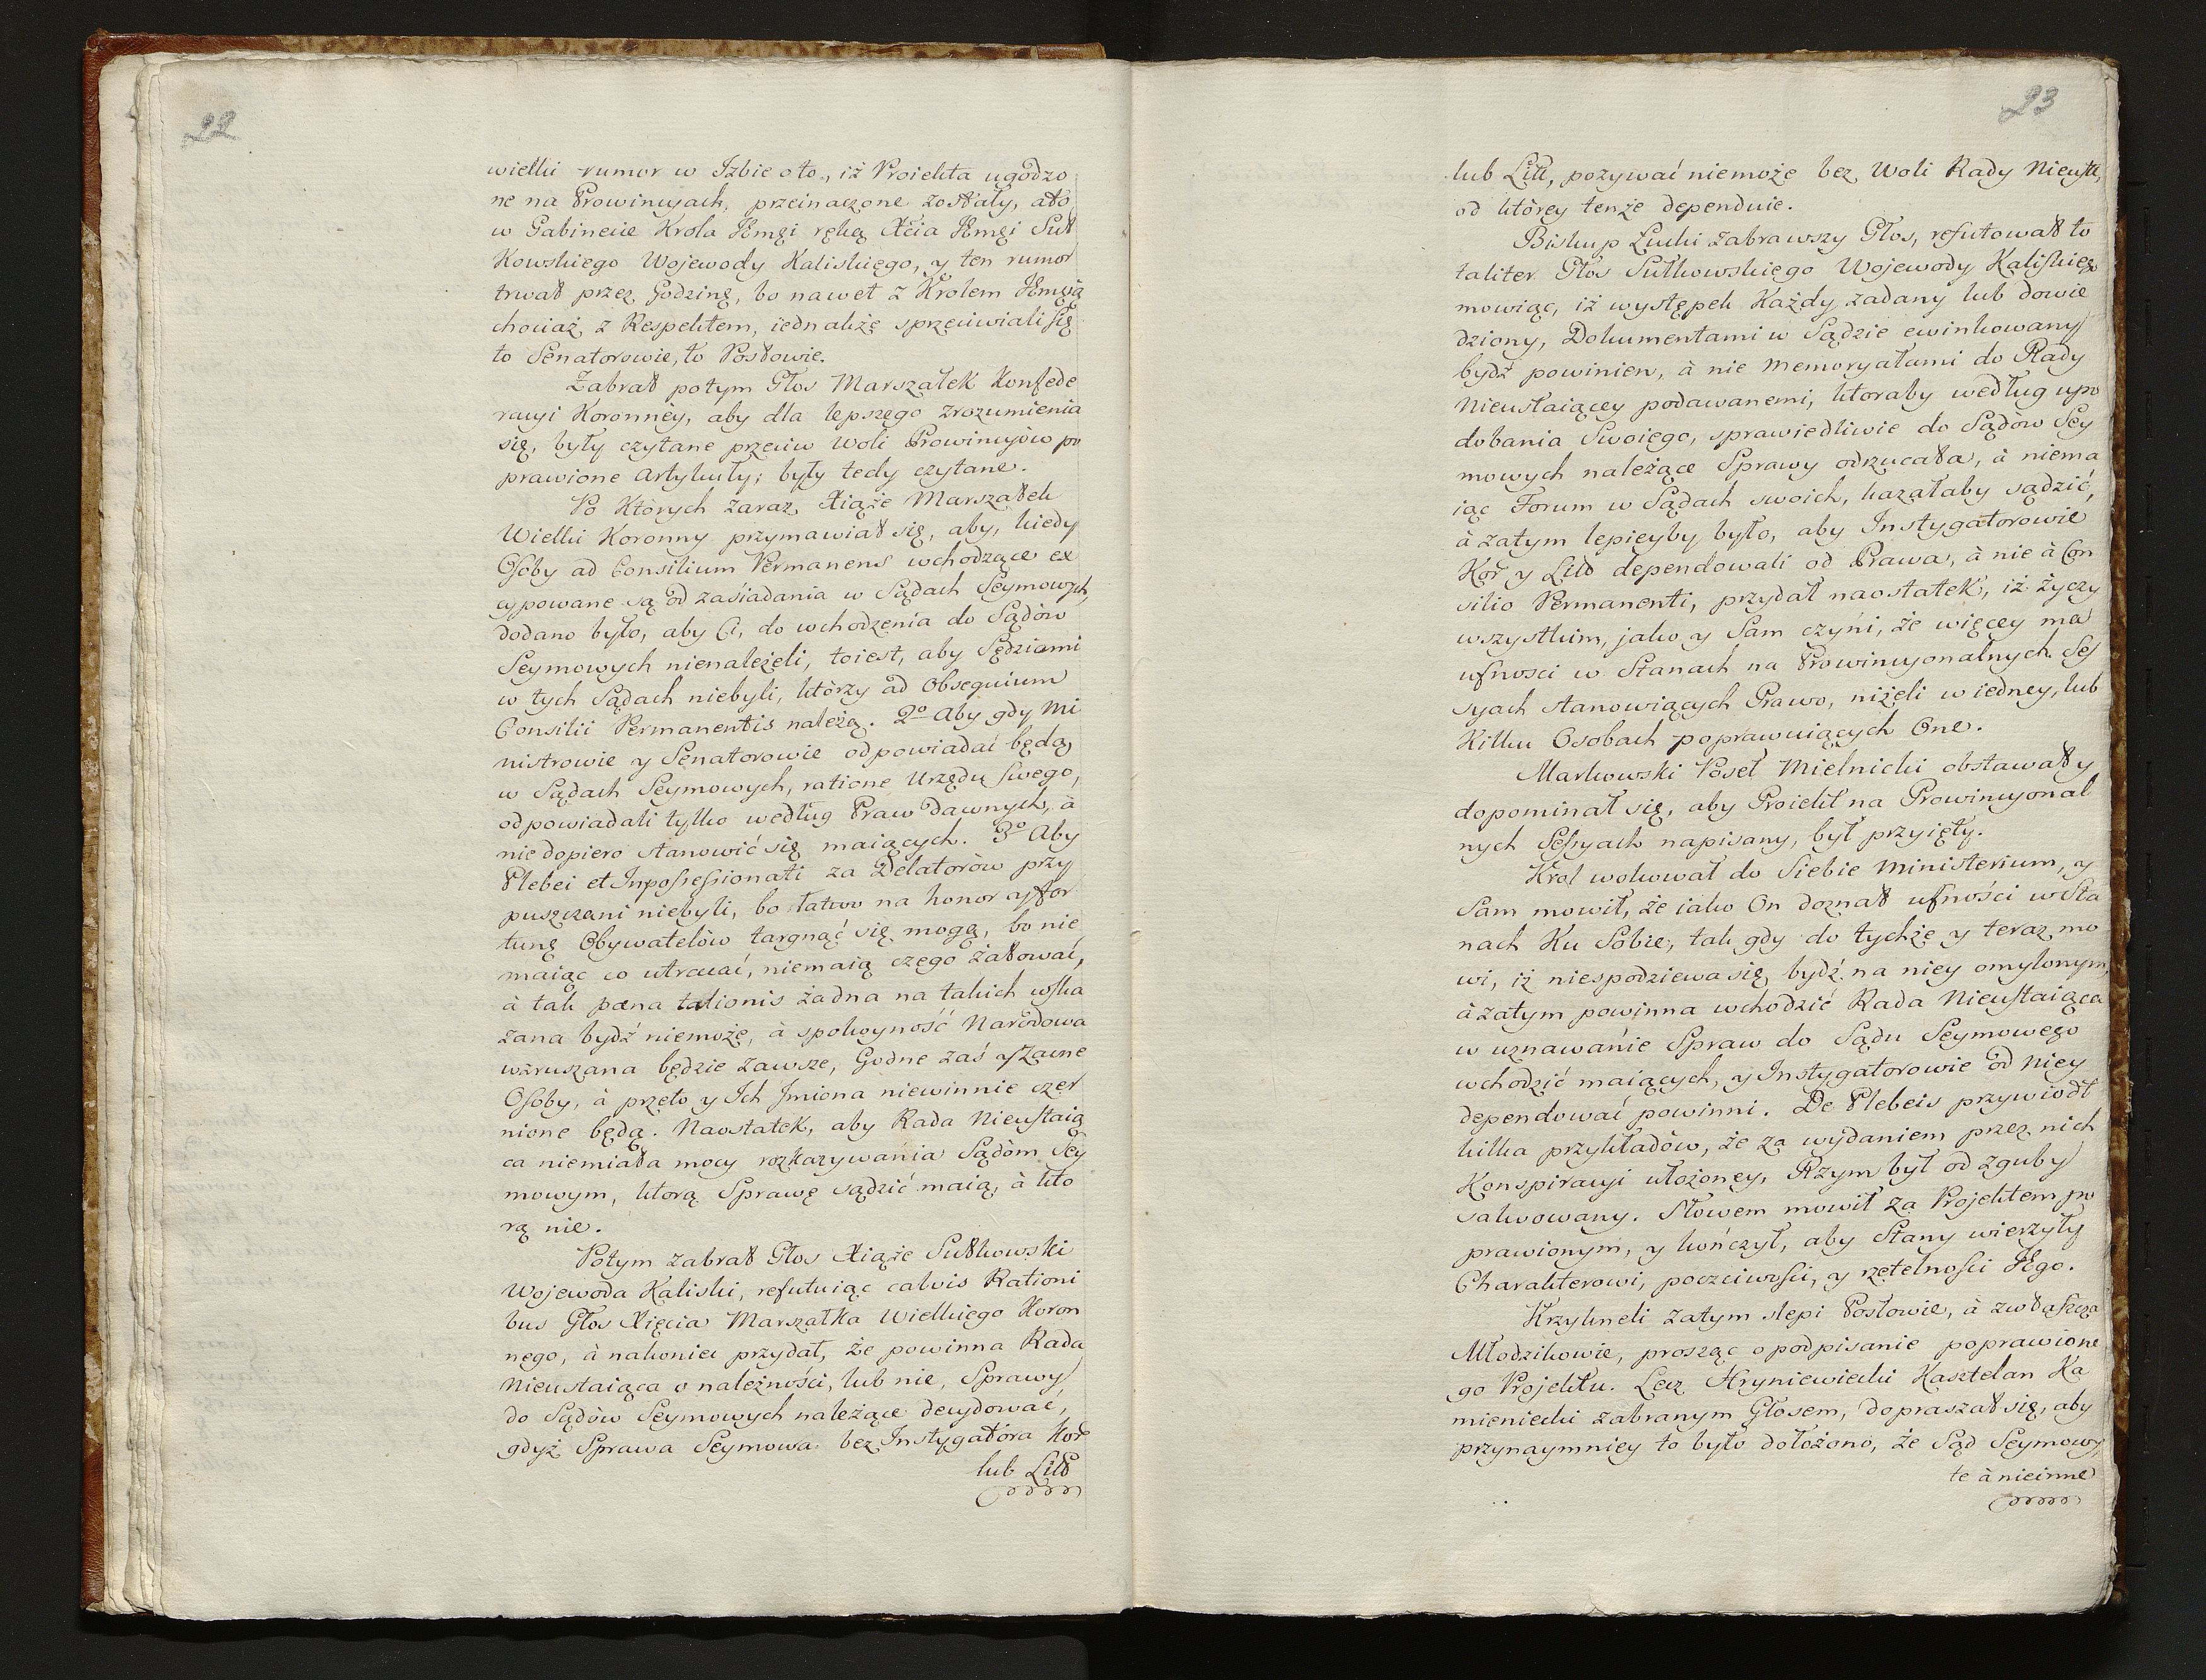 22
wielki rumor w Izbie oto, iż Proiekta ugodzo
ne na Prowincyach, przeinaczone zostały, ato
w Gabinecie Krola JEmgi ręką Xcia JEmgi Suł
Kowskiego Wojewody Kaliskiego, y ten rumor
trwał przez Godzinę, bo nawet z Krolem JEmgią
chociaż z Respektem, iednakże sprzeciwiali się
to Senatorowie, to Posłowie.
Zabrał potym Głos Marszałek Konfede
racyi Koronney, aby dla lepszego zrozumienia
się, były czytane przeciw woli Prowincyów po
prawione Artykuły; były tedy czytane.
Po Których zaraz Xiąże Marszałek
Wielki Koronny przymawiał się, aby, kiedy
Osoby ad Consilium Permanens wchodzące ex
cypowane są od zasiadania w Sądach Seymowych,
dodano było, aby Ci, do wchodzenia do Sądow
Seymowych nienależeli, toiest, aby Sędziami
w tych Sądach niebyli, którzy ad Obsequium
Consilii Permanentis należą. 2º Aby gdy Mi
nistrowie y Senatorowie odpowiadać będą
w Sądach Seymowych, ratione Urzędu swego,
odpowiadali tylko według Praw dawnych, à
nie dopiero stanowić się maiących. 3º Aby
Plebei et Inpossessionati za Delatorów przy
puszczani niebyli, bo łatwo na honor y for
tunę Obywatelów targnąć się mogą, bo nie
maiąc co utracać, niemaią czego żałować,
à tak pæna talionis żadna na takich wska
zana bydź niemoże, à spokoyność Narodowa
wzruszana będzie zawsze, Godne zaś y Zacne
Osoby, à przeto y Ich Jmiona niewinnie czer
nione będą. Naostatek, aby Rada Nieustaią
ca niemiała mocy rozkazywania Sądóm Sey
mowym, którą Sprawę sądzić maią, à któ
rą nie.
Potym zabrał Głos Xiąże Sułkowski
Wojewoda Kaliski, refutuiąc calvis Rationi
bus Głos Xięcia Marszałka Wielkiego Koron
nego, à nakoniec przydał, że powinna Rada
Nieustaiąca o należności, lub nie, Sprawy
do Sądów Seymowych należące decydować,
gdyż Sprawa Seymowa bez Instygatora Kor
lub Litt
23
lub Litt, pozywać niemoże bez Woli Rady Nieust,
od którey tenże dependuie.
Biskup Łucki zabrawszy Głos, refutował to
taliter Głos Sułkowskiego Wojewody Kaliskiego
mowiąc, iż występek Każdy zadany lub dowie
dziony, Dokumentami w Sądzie ewinkowany
bydź powinien, à nie Memoryałami do Rady
Nieustaiącey podawanemi, którаby według upo
dobania Swoiego, sprawiedliwie do Sądow Sey
mowych należące Sprawy odrzucała, à niema
iąc Forum w Sądach swoich, kazałaby sądzić,
à zatym lepieyby było, aby Instygatorowie
Kor y Litt dependowali od Prawa, à nie à Con
silio Permanenti, przydał naostatek, iż życzy
wszystkim, jako y Sam czyni, że więcey ma
ufnosci w Stanach na Prowincyonalnych Ses
syach stanowiących Prawo, niżeli w iedney, lub
Kilku Osobach poprawuiących One.
Markowski Poseł Mielnicki obstawał y
dopominał się, aby Proiekt na Prowincyonal
nych Sessyach napisany, był przyięty.
Krol wokował do Siebie Ministerium, y
Sam mowił, że iako On doznał ufności w Sta
nach Ku Sobie, tak gdy do tychże y teraz mo
wi, iż niespodziewa się bydź na niey omylonym,
à zatym powinna wchodzić Rada Nieustaiąca
w uznawanie Spraw do Sądu Seymowego
wchodzić maiących, y Instygatorowie od niey
dependować powinni. De Plebeis przywiodł
kilka przykładów, że za wydaniem przez nich
Konspiracyi ułożoney, Rzym był od zguby
salwowany. Słowem mowił za Projektem po
prawionym, y kończył, aby Stany wierzyły
Charakterowi, poczciwosci, y rzetelnosci JEgo.
Krzykneli zatym slepi Posłowie, à zwłaszcza
Młodzikowie, prosząc o podpisanie poprawione
go Projektu. Lecz Hryniewiecki Kasztelan Ka
mieniecki zabranym Głosem, dopraszał się, aby
przynaymniey to było dołożono, że Sąd Seymowy,
te à nieinne